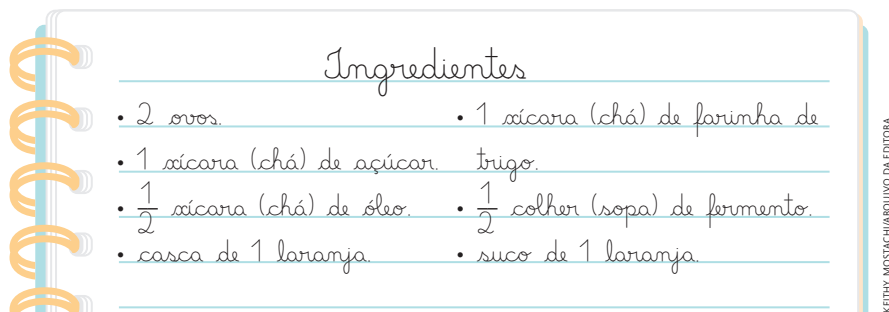 Ingredientes
• 2 ovos.
• 1 xícara (chá) de açúcar.
• 1/2 xícara (chá) de óleo.
• casca de 1 laranja.
• 1 xícara (chá) de farinha de
trigo.
• 1/2 colher (sopa) de fermento.
• suco de 1 laranja.
KEITHY MOSTACHI/ARQUIVO DA EDITORA